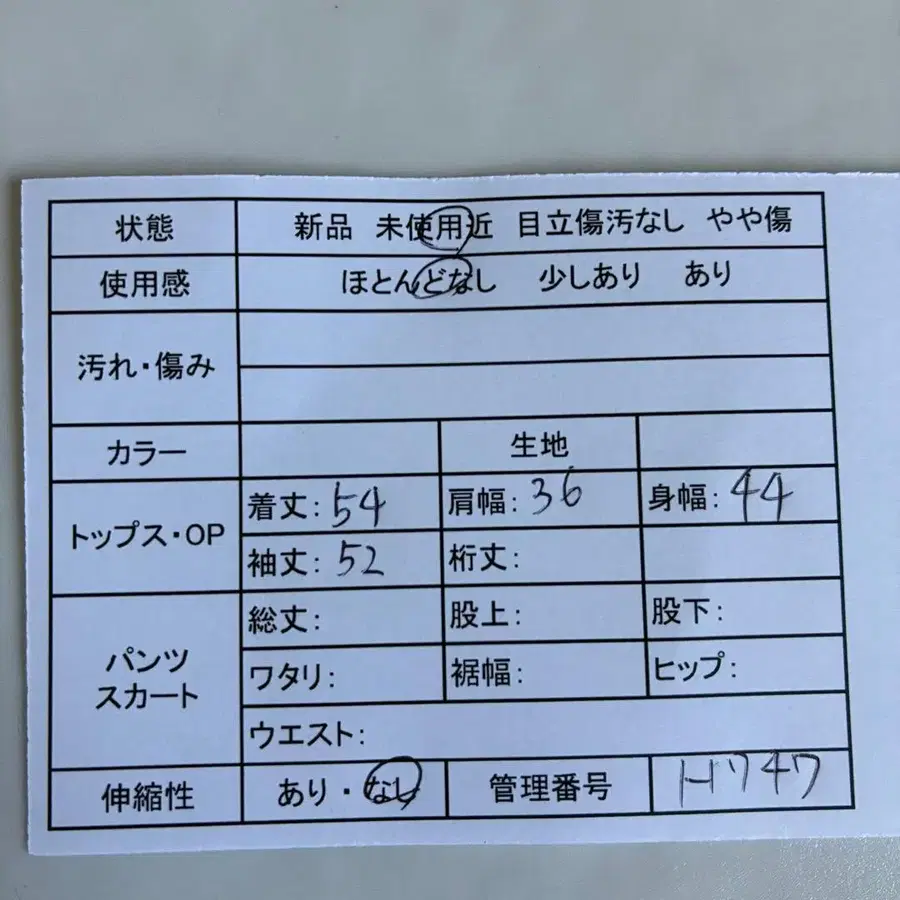 状態 新品 未使用近 目立傷汚なし やや傷
使用感 ほとんどなし 少しあり あり
汚れ・傷み
カラー 生地
トップス・OP 着丈: 54 肩幅: 36 身幅: 44
袖丈: 52 裄丈:
パンツ スカート 総丈: 股上: 股下:
ワタリ: 裾幅: ヒップ:
ウエスト:
伸縮性 あり・なし 管理番号 H747